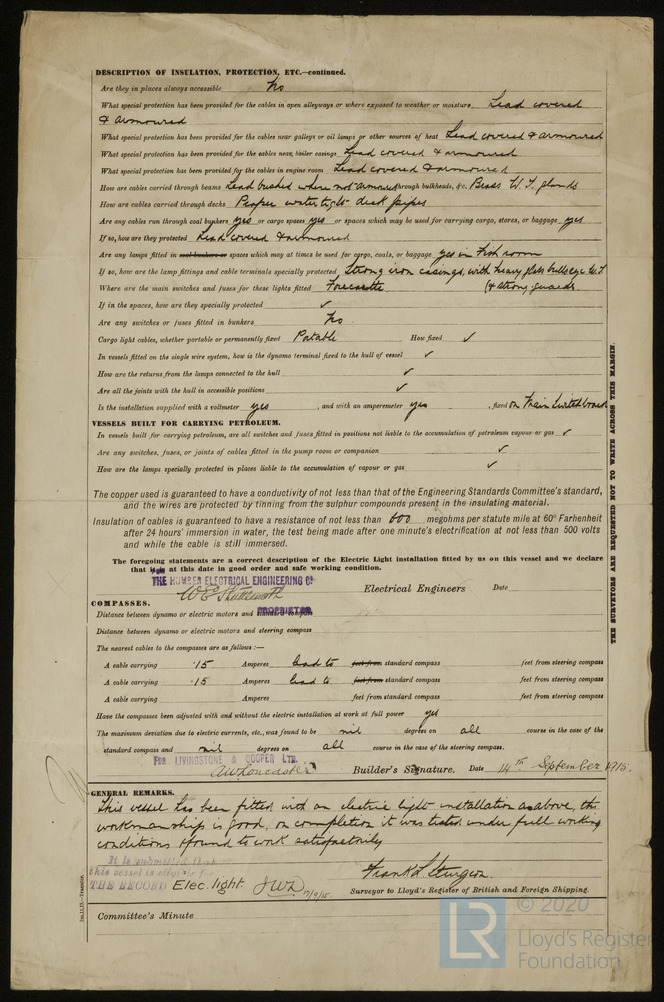 DESCRIPTION OF INSULATION, PROTECTION, ETC.—continued.
Are they in places always accessible No
What special protection has been provided for the cables in open alleyways or where exposed to weather or moisture Lead covered
& armoured
What special protection has been provided for the cables near galleys or oil lamps or other sources of heat Lead covered & armoured
What special protection has been provided for the cables near boiler casings Lead covered & armoured
What special protection has been provided for the cables in engine room Lead covered & armoured
How are cables carried through beams Lead bushed where not armoured through bulkheads, &c. Brass W.T. glands
How are cables carried through decks Proper watertight deck pipes
Are any cables run through coal bunkers yes or cargo spaces yes or spaces which may be used for carrying cargo, stores, or baggage yes
If so, how are they protected Lead covered & armoured
Are any lamps fitted in coal bunkers or spaces which may at times be used for cargo, coals, or baggage yes in Fish room
If so, how are the lamp fittings and cable terminals specially protected Strong iron casings, with heavy glass bullseye W.T
Where are the main switches and fuses for these lights fitted Forecastle (& strong guards.
If in the spaces, how are they specially protected ✓
Are any switches or fuses fitted in bunkers No
Cargo light cables, whether portable or permanently fixed Portable How fixed ✓
In vessels fitted on the single wire system, how is the dynamo terminal fixed to the hull of vessel ✓
How are the returns from the lamps connected to the hull ✓
Are all the joints with the hull in accessible positions ✓
Is the installation supplied with a voltmeter yes, and with an amperemeter yes, fixed on Main Switchboard
VESSELS BUILT FOR CARRYING PETROLEUM.
In vessels built for carrying petroleum, are all switches and fuses fitted in positions not liable to the accumulation of petroleum vapour or gas ✓
Are any switches, fuses, or joints of cables fitted in the pump room or companion ✓
How are the lamps specially protected in places liable to the accumulation of vapour or gas ✓
The copper used is guaranteed to have a conductivity of not less than that of the Engineering Standards Committee's standard,
and the wires are protected by tinning from the sulphur compounds present in the insulating material.
Insulation of cables is guaranteed to have a resistance of not less than 600 megohms per statute mile at 60° Farhenheit
after 24 hours' immersion in water, the test being made after one minute's electrification at not less than 500 volts
and while the cable is still immersed.
The foregoing statements are a correct description of the Electric Light installation fitted by us on this vessel and we declare
that it is at this date in good order and safe working condition.
THE HUMBER ELECTRICAL ENGINEERING Co
Electrical Engineers Date
COMPASSES.
PROPRIETOR
Distance between dynamo or electric motors and standard compass
Distance between dynamo or electric motors and steering compass
The nearest cables to the compasses are as follows:—
A cable carrying ·15 Amperes lead to feet from standard compass feet from steering compass
A cable carrying ·15 Amperes lead to feet from standard compass feet from steering compass
A cable carrying Amperes feet from standard compass feet from steering compass
Have the compasses been adjusted with and without the electric installation at work at full power yes
The maximum deviation due to electric currents, etc., was found to be nil degrees on all course in the case of the
standard compass and nil degrees on all course in the case of the steering compass.
FOR LIVINGSTONE & COOPER LTD.
Builder's Signature. Date 14th September 1915.
GENERAL REMARKS.
This vessel has been fitted with an electric light installation as above, the
workmanship is good, on completion it was tested under full working
conditions & found to work satisfactorily
It is submitted that
this vessel is eligible for
THE RECORD Elec. light. JWD 7/9/15.
Frank L Sturgeon.
Surveyor to Lloyd's Register of British and Foreign Shipping.
Committee's Minute
THE SURVEYORS ARE REQUESTED NOT TO WRITE ACROSS THIS MARGIN.
© 2020
LR
Lloyd's Register
Foundation